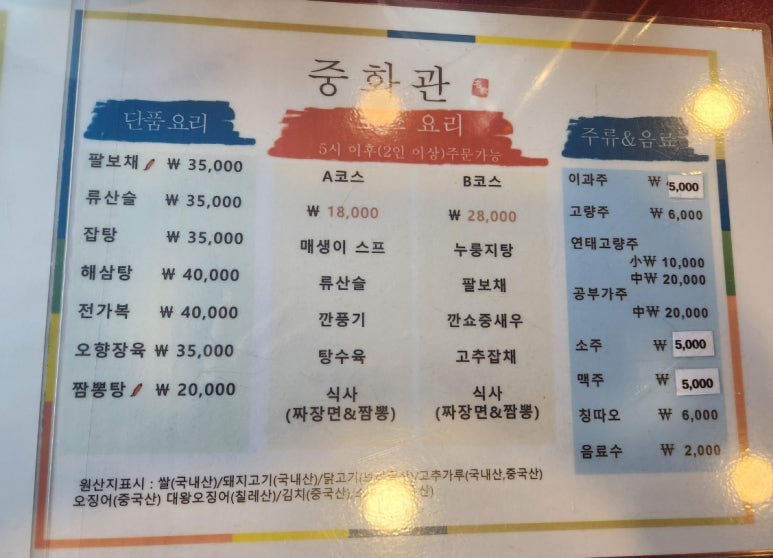 중화관
단품요리
팔보채 ₩ 35,000
류산슬 ₩ 35,000
잡탕 ₩ 35,000
해삼탕 ₩ 40,000
전가복 ₩ 40,000
오향장육 ₩ 35,000
짬뽕탕 ₩ 20,000
요리
5시 이후(2인 이상)주문가능
A코스
₩ 18,000
매생이 스프
류산슬
깐풍기
탕수육
식사
(짜장면&짬뽕)
B코스
₩ 28,000
누룽지탕
팔보채
깐쇼중새우
고추잡채
식사
(짜장면&짬뽕)
주류&음료
이과주 ₩ 5,000
고량주 ₩ 6,000
연태고량주
小₩ 10,000
中₩ 20,000
공부가주
中₩ 20,000
소주 ₩ 5,000
맥주 ₩ 5,000
칭따오 ₩ 6,000
음료수 ₩ 2,000
원산지표시 : 쌀(국내산)/돼지고기(국내산)/닭고기/고추가루(국내산,중국산)
오징어(중국산) 대왕오징어(칠레산)/김치(중국산)